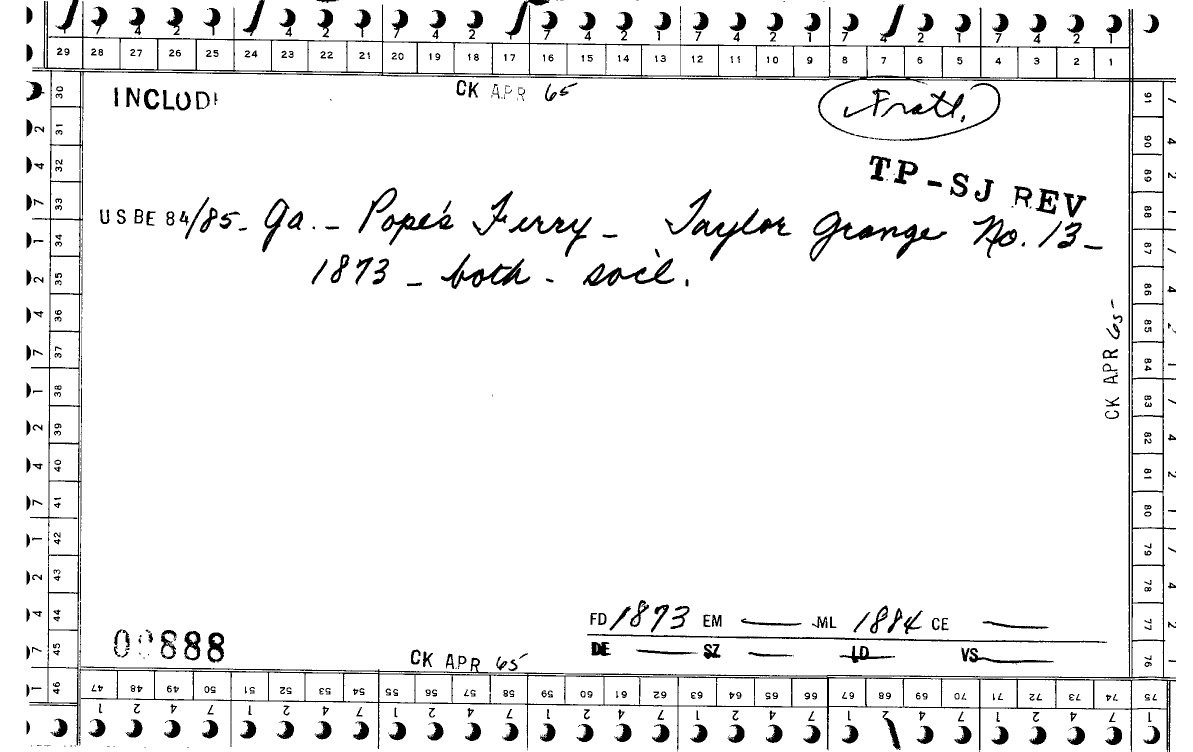 7 4 2 1 7 4 2 1 7 4 2 1 7 4 2 1 7 4 2 1 7 4 2 1
29 28 27 26 25 24 23 22 21 20 19 18 17 16 15 14 13 12 11 10 9 8 7 6 5 4 3 2 1
INCLUD
CK APR 65
Fratl.
TP-SJ REV
USBE 84/85- Ga. - Pope's Ferry - Taylor Grange No. 13-
1873 - both - soil.
CK APR 65
FD 1873 EM — ML 1884 CE —
DE — SZ — LD VS —
00888
CK APR 65
30 31 32 33 34 35 36 37 38 39 40 41 42 43 44 45 46
91 90 89 88 87 86 85 84 83 82 81 80 79 78 77 76 75
47 48 49 50 51 52 53 54 55 56 57 58 59 60 61 62 63 64 65 66 67 68 69 70 71 72 73 74 75